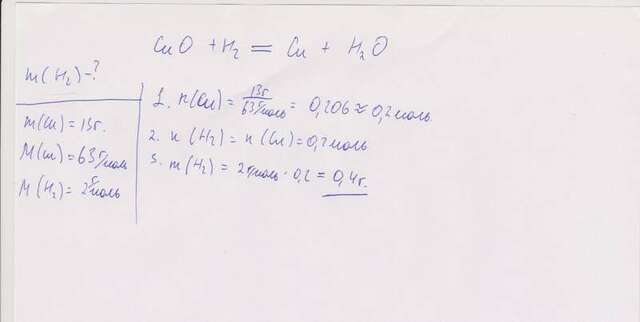 CuO + H₂ = Cu + H₂O
m(H₂)-?
m(Cu)=13г.
M(Cu)=63 г/моль
M(H₂)=2 г/моль
1. n(Cu) = 13г / 63 г/моль = 0,206 ≈ 0,2 моль
2. n(H₂) = n(Cu) = 0,2 моль
3. m(H₂) = 2 г/моль · 0,2 = 0,4г.